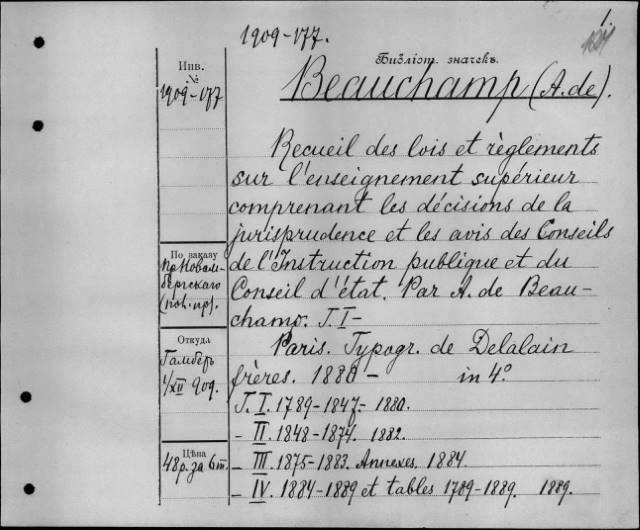 1909-177.
1.
Библіот. значекъ.
Инв.
№
1909-177
Beauchamp (A. de).
Recueil des lois et règlements
sur l'enseignement supérieur
comprenant les décisions de la
jurisprudence et les avis des Conseils
По заказу
de l'Instruction publique et du
Conseil d'état. Par A. de Beau-
champ. T. I-
Откуда
Paris. Typogr. de Delalain
frères. 1880 - in 4°
Гамберъ
1/XII 909.
T. I. 1789-1847- 1880.
- II. 1848-1874. 1882.
Цѣна
48 р. за 6 т.
- III. 1875-1883. Annexes. 1884.
- IV. 1884-1889 et tables 1789-1889. 1889.